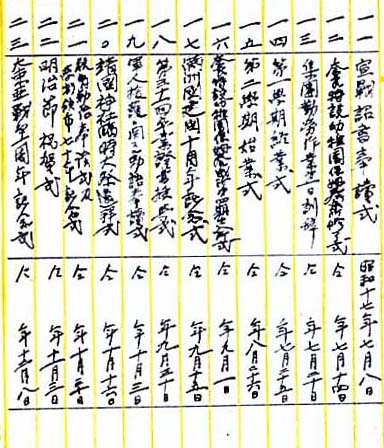 一一 宣戰詔書奉讀式 昭和十七年七月八日
一二 仝年七月十四日
一三 集團勤勞作業第一日訓辞 仝年七月二十日
一四 第一學期終業式 仝年七月二十五日
一五 第二學期始業式 仝年八月二六日
一六 仝年九月一日
一七 滿洲國建國十周年記念式 仝年九月十五日
一八 第二十四 證書授與式 仝年九月三十日
一九 軍人援護 勅語奉讀式 仝年十月三日
二〇 靖國神社臨時大祭遙拜式 仝年十月十六日
二一 教育勅語奉讀式及 七十年記念式 仝年十月三十日
二二 明治節祝賀式 仝年十一月三日
二三 大東亞戰爭一周年記念式 仝年十二月八日